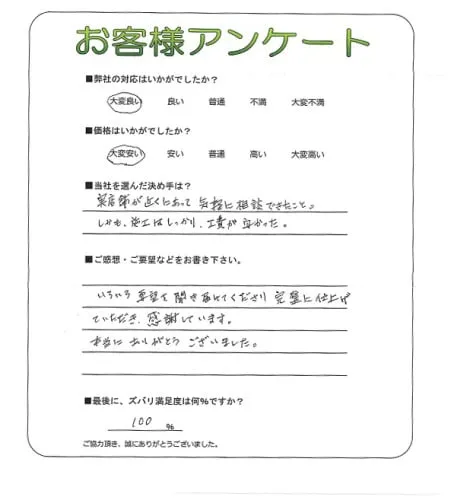 お客様アンケート
■弊社の対応はいかがでしたか?
大変良い 良い 普通 不満 大変不満
■価格はいかがでしたか?
大変安い 安い 普通 高い 大変高い
■当社を選んだ決め手は?
実店舗が近くにあって 気軽に相談できたこと。
しかも、施工はしっかり、工費が安かった。
■ご感想・ご要望などをお書き下さい。
いろいろ要望を聞き届けてくださり 完璧に仕上げ
ていただき、感謝しています。
本当に ありがとう ございました。
■最後に、ズバリ満足度は何%ですか?
100 %
ご協力頂き、誠にありがとうございました。